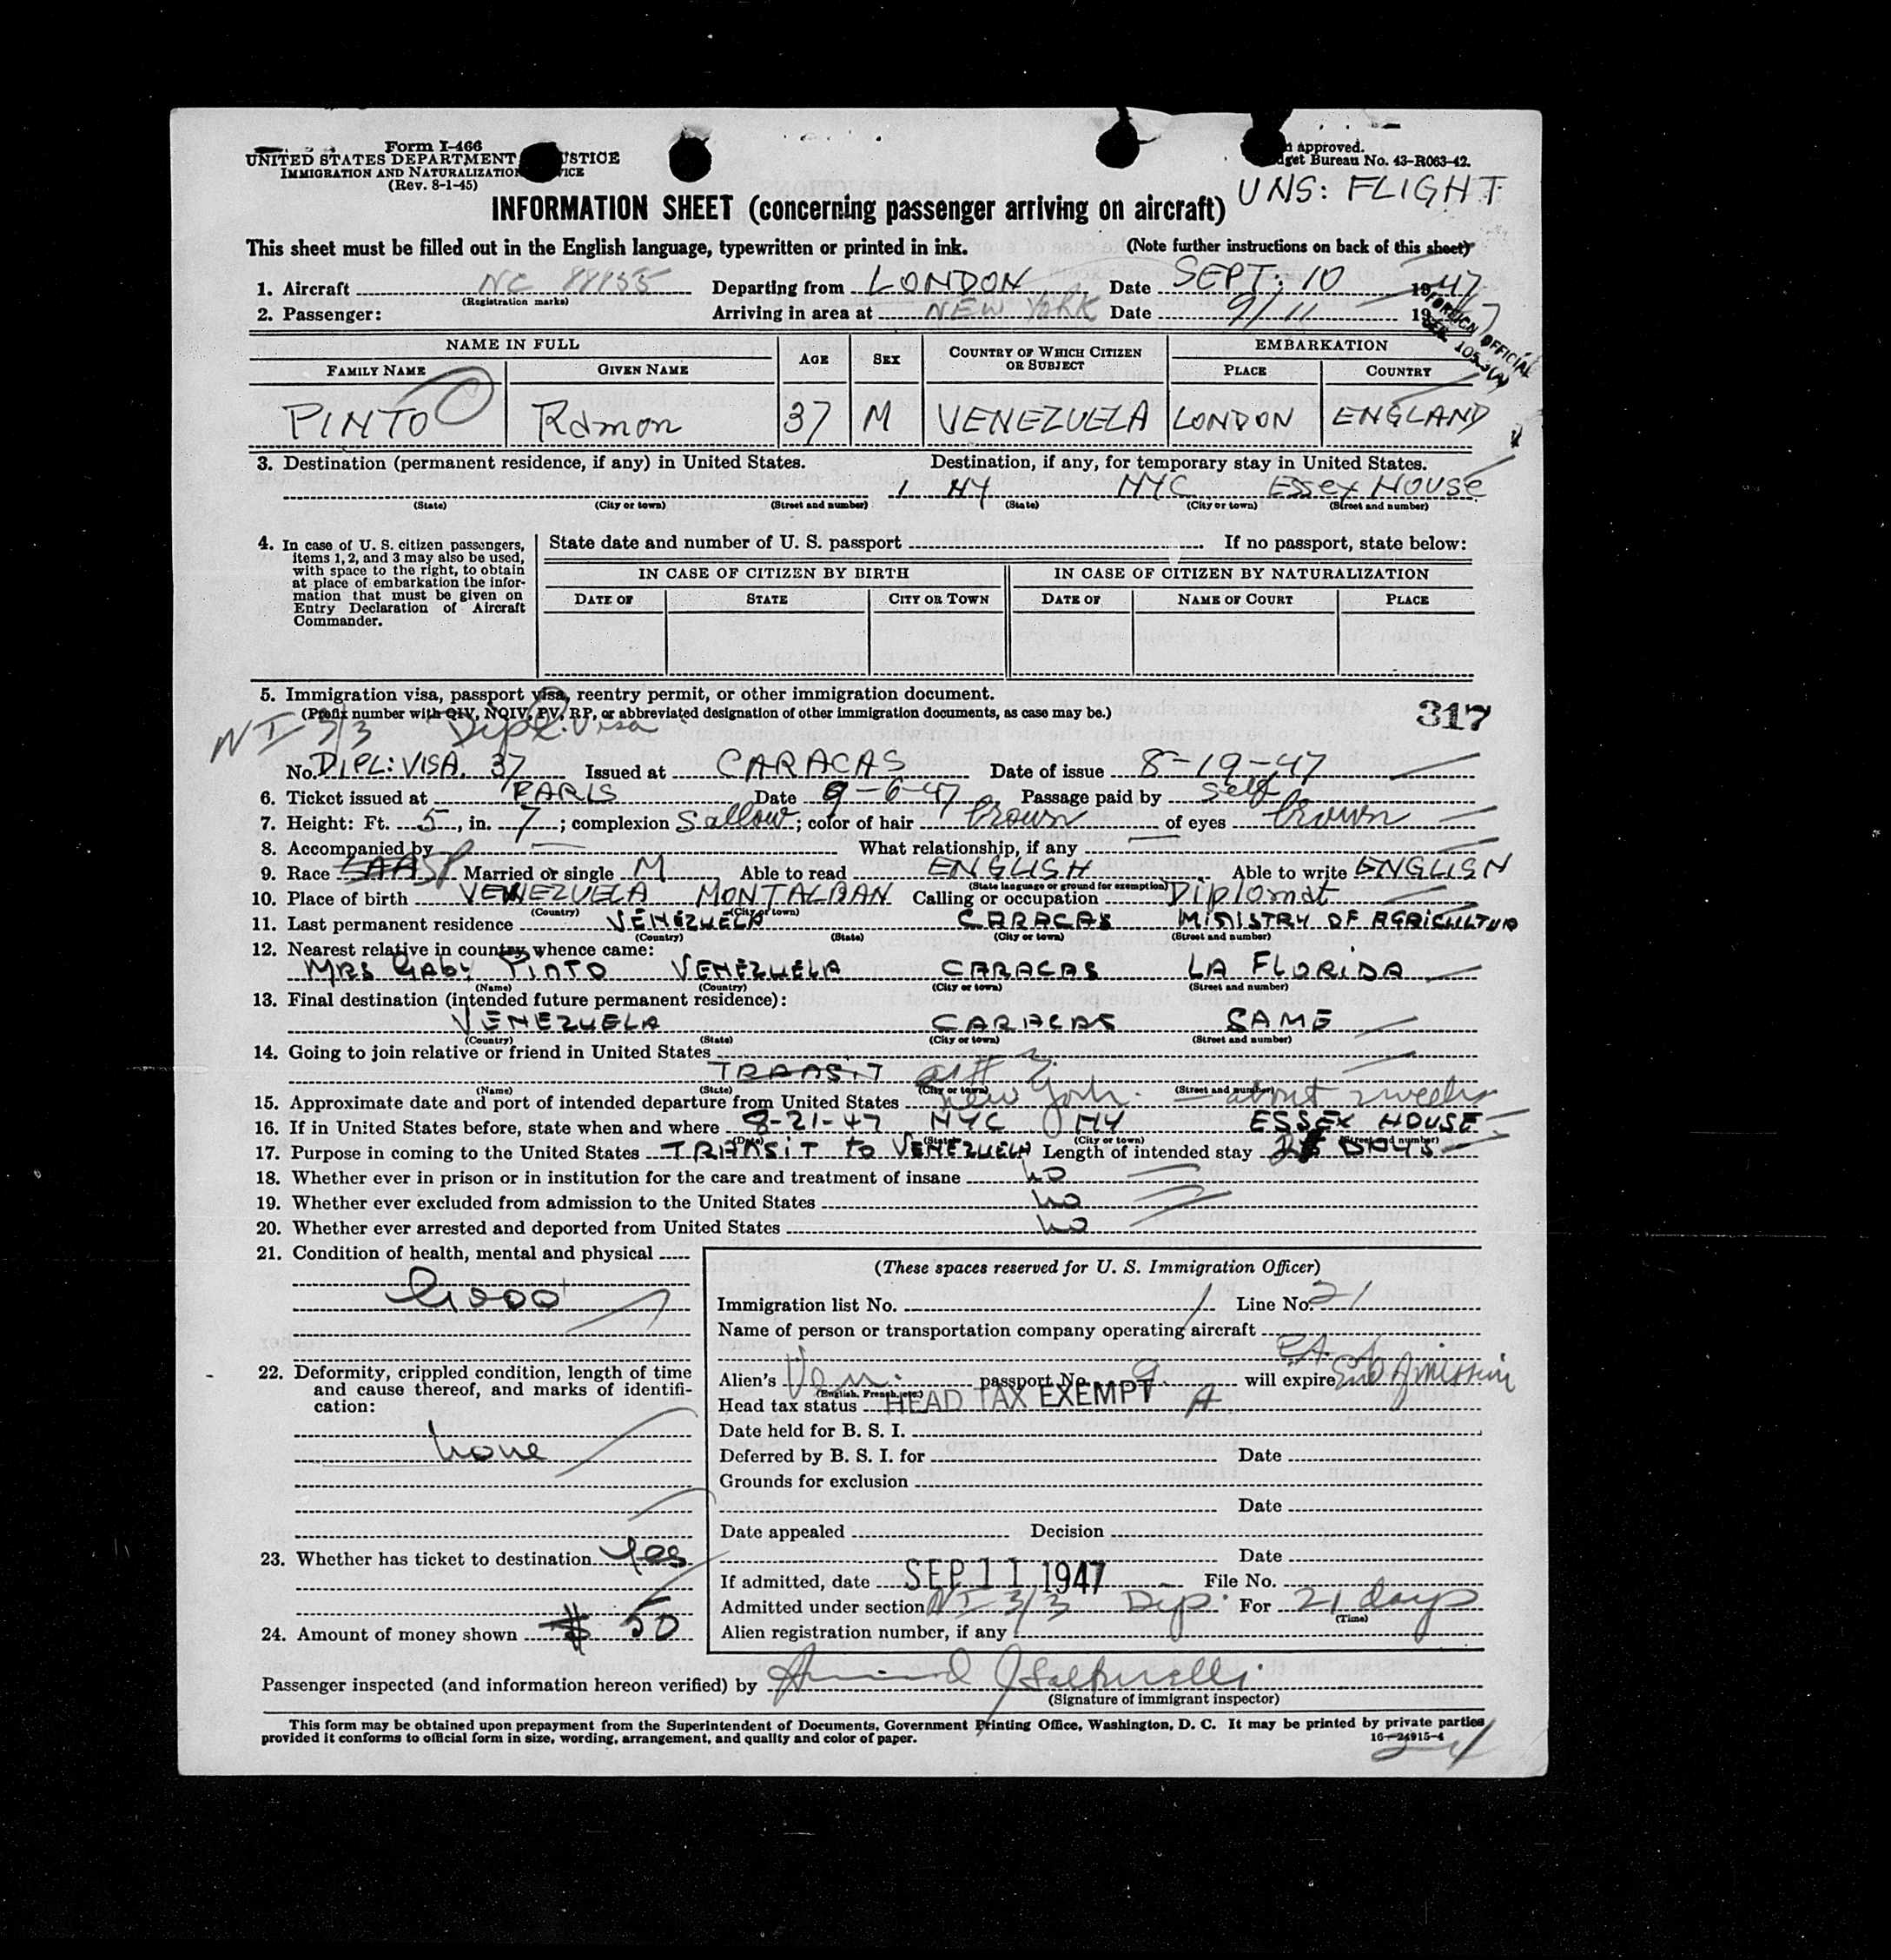 Form I-466
UNITED STATES DEPARTMENT JUSTICE
IMMIGRATION AND NATURALIZATION
(Rev. 8-1-45)
approved.
Budget Bureau No. 43-R063-42.
UNS: FLIGHT
INFORMATION SHEET (concerning passenger arriving on aircraft)
This sheet must be filled out in the English language, typewritten or printed in ink. (Note further instructions on back of this sheet)
1. Aircraft NC 88155 Departing from LONDON Date SEPT. 10 1947
(Registration marks)
2. Passenger: Arriving in area at NEW YORK Date 9/11 1947
FOREIGN OFFICIAL
NAME IN FULL AGE SEX COUNTRY OF WHICH CITIZEN OR SUBJECT EMBARKATION
FAMILY NAME GIVEN NAME PLACE COUNTRY
PINTO Ramon 37 M VENEZUELA LONDON ENGLAND
3. Destination (permanent residence, if any) in United States. Destination, if any, for temporary stay in United States.
NY NYC Essex House
(State) (City or town) (Street and number) (State) (City or town) (Street and number)
4. In case of U. S. citizen passengers, items 1, 2, and 3 may also be used, with space to the right, to obtain at place of embarkation the information that must be given on Entry Declaration of Aircraft Commander.
State date and number of U. S. passport If no passport, state below:
IN CASE OF CITIZEN BY BIRTH IN CASE OF CITIZEN BY NATURALIZATION
DATE OF STATE CITY OR TOWN DATE OF NAME OF COURT PLACE
5. Immigration visa, passport visa, reentry permit, or other immigration document.
(Prefix number with QIV, NQIV, PV, RP, or abbreviated designation of other immigration documents, as case may be.) 317
NI 3/3 Dipl. Visa
No. DIPL: VISA. 37 Issued at CARACAS Date of issue 8-19-47
6. Ticket issued at PARIS Date 9-6-47 Passage paid by self
7. Height: Ft. 5, in. 7; complexion Sallow; color of hair brown of eyes brown
8. Accompanied by What relationship, if any
9. Race SP Married or single M Able to read ENGLISH Able to write ENGLISH
(State language or ground for exemption)
10. Place of birth VENEZUELA MONTALBAN Calling or occupation Diplomat
(Country) (City or town)
11. Last permanent residence VENEZUELA CARACAS MINISTRY OF AGRICULTUR
(Country) (State) (City or town) (Street and number)
12. Nearest relative in country whence came:
MRS Gaby PINTO VENEZUELA CARACAS LA FLORIDA
(Name) (Country) (City or town) (Street and number)
13. Final destination (intended future permanent residence):
VENEZUELA CARACAS SAME
(Country) (State) (City or town) (Street and number)
14. Going to join relative or friend in United States
TRANSIT
(Name) (State) (City or town) (Street and number)
15. Approximate date and port of intended departure from United States New York. — about 2 weeks
16. If in United States before, state when and where 8-21-47 NYC NY ESSEX HOUSE
(Date) (State) (City or town) (Street and number)
17. Purpose in coming to the United States TRANSIT to VENEZUELA Length of intended stay DAYS
18. Whether ever in prison or in institution for the care and treatment of insane no
19. Whether ever excluded from admission to the United States no
20. Whether ever arrested and deported from United States no
21. Condition of health, mental and physical
Good
22. Deformity, crippled condition, length of time and cause thereof, and marks of identification:
none
23. Whether has ticket to destination yes
24. Amount of money shown $ 50
(These spaces reserved for U. S. Immigration Officer)
Immigration list No. 1 Line No. 21
Name of person or transportation company operating aircraft
P.A.
Alien's Ven. passport No. 9 will expire
(English, French, etc.)
Head tax status HEAD TAX EXEMPT A
Date held for B. S. I.
Deferred by B. S. I. for Date
Grounds for exclusion
Date
Date appealed Decision
Date
If admitted, date SEP 11 1947 File No.
Admitted under section NI 3/3 Dip. For 21 days
(Time)
Alien registration number, if any
Passenger inspected (and information hereon verified) by
(Signature of immigrant inspector)
This form may be obtained upon prepayment from the Superintendent of Documents, Government Printing Office, Washington, D. C. It may be printed by private parties
provided it conforms to official form in size, wording, arrangement, and quality and color of paper. 16—24915-4